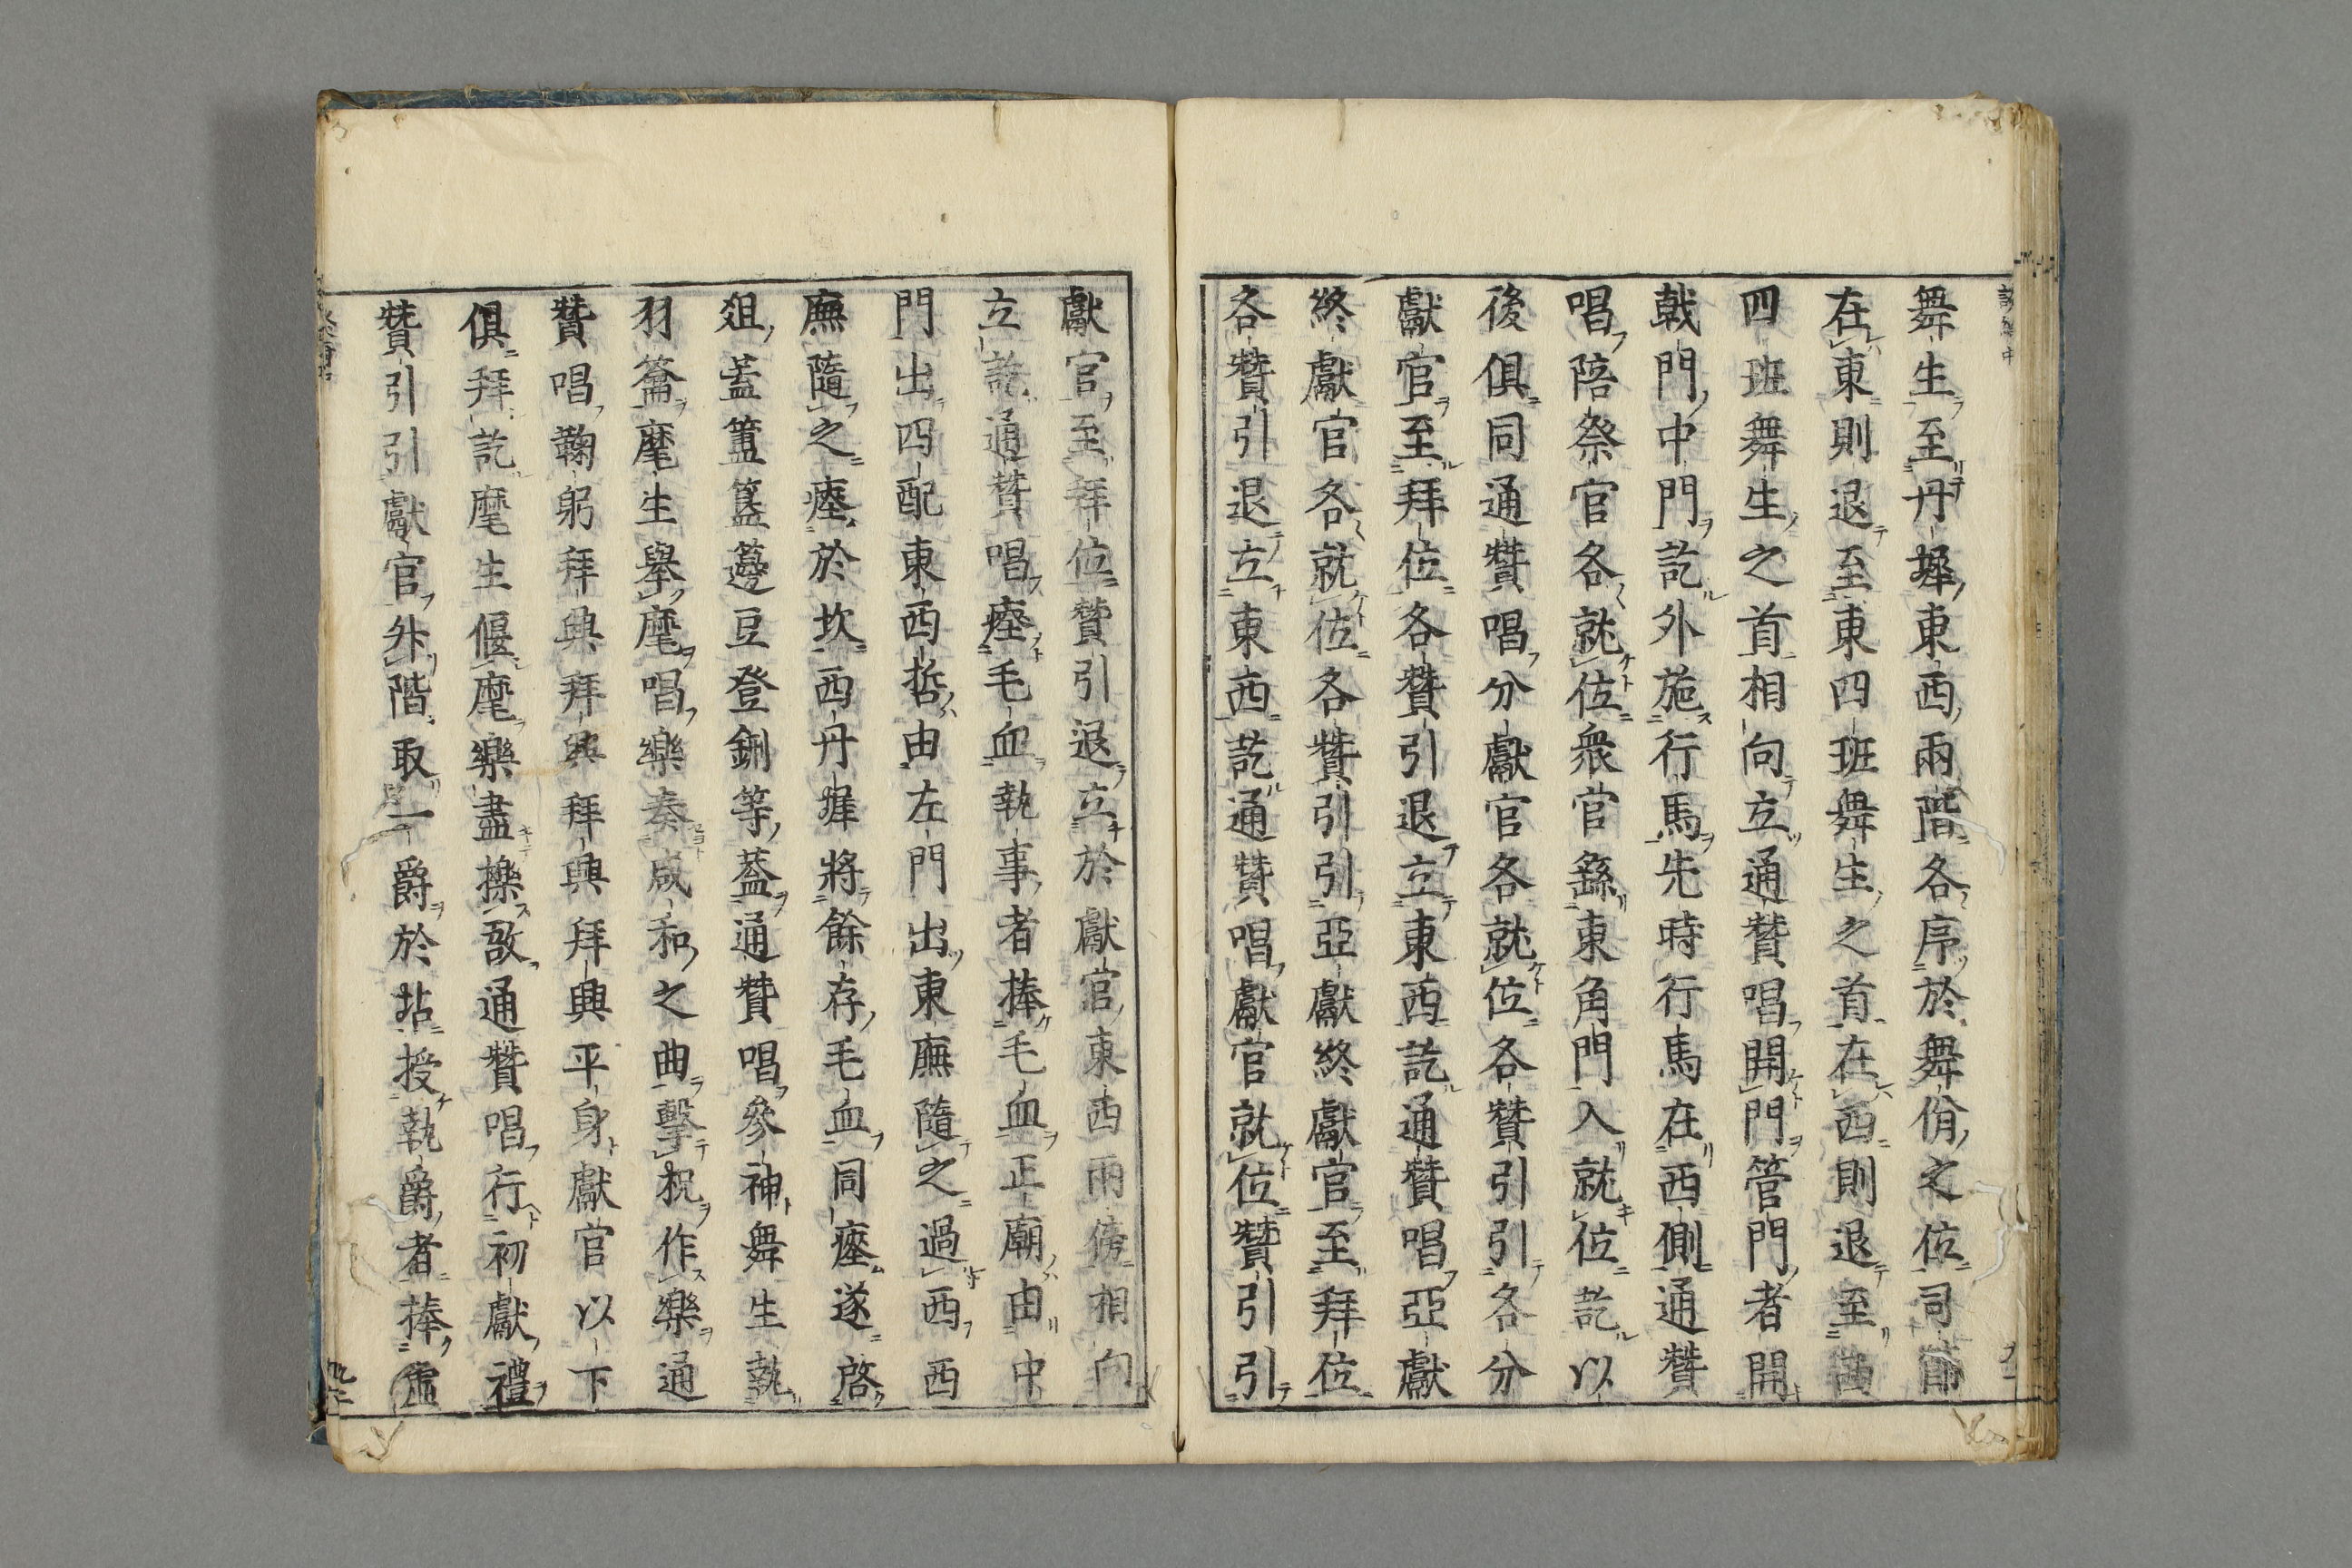 舞生至丹墀東西兩階各序於舞佾之位司節
在東則退至東四班舞生之首在西則退至西
四班舞生之首相向立通贊唱開門管門者開
戟門中門訖外施行馬先時行馬在西側通贊
唱陪祭官各就位衆官繇東角門入就位訖以
後俱同通贊唱分獻官各就位各贊引引各分
獻官至拜位各贊引退立東西訖通贊唱亞獻
終獻官各就位各贊引引亞獻終獻官至拜位
各贊引退立東西訖通贊唱獻官就位贊引引
獻官至拜位贊引退立於獻官東西兩傍相向
立訖通贊唱瘞毛血執事者捧毛血正廟由中
門出四配東西哲由左門出東廡隨之過西西
廡隨之瘞於坎西丹墀將餘存毛血同瘞遂啓
俎蓋簠簋籩豆登鉶等蓋通贊唱參神舞生執
羽籥麾生擧麾唱樂奏咸和之曲擊柷作樂通
贊唱鞠躬拜興拜興拜興拜興平身獻官以下
俱拜訖麾生偃麾樂盡擽敔通贊唱行初獻禮
贊引引獻官升階取一爵於坫授執爵者捧虛